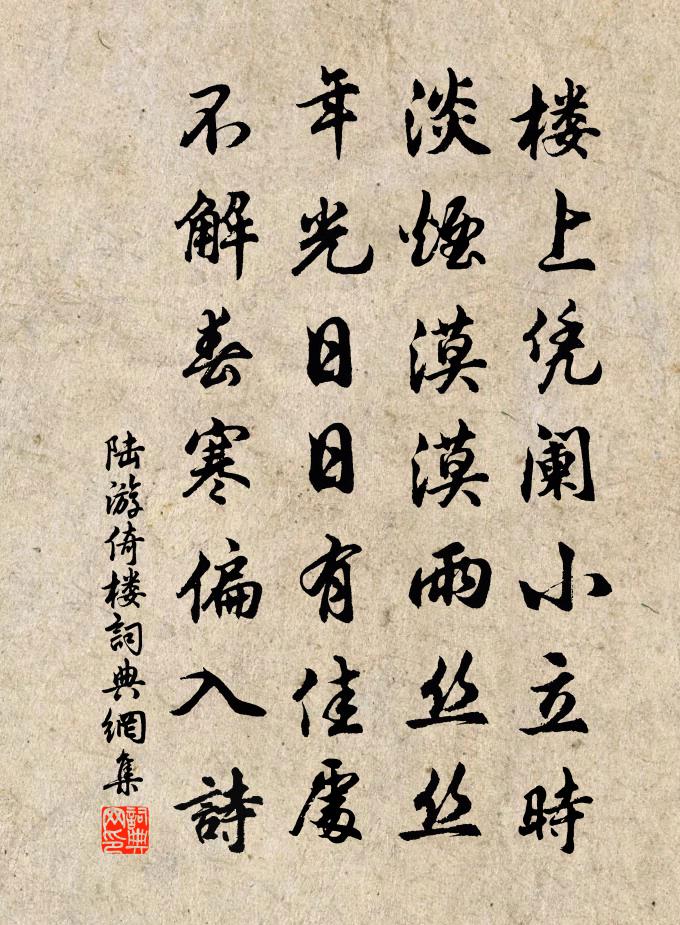 楼上凭阑小立時
淡煙漠漠雨丝丝
年光日日有佳處
不解春寒偏入詩
陆游倚楼詞典網集
詞典网印